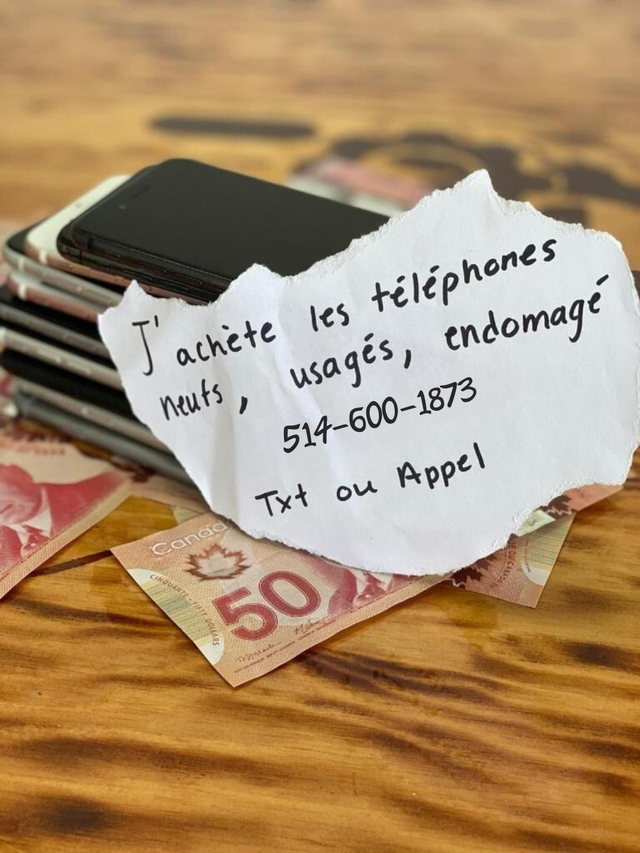 J'achète les téléphones
neufs, usagés, endomagé
514-600-1873
Txt ou Appel
Canada
CINQUANTE · FIFTY DOLLARS
50